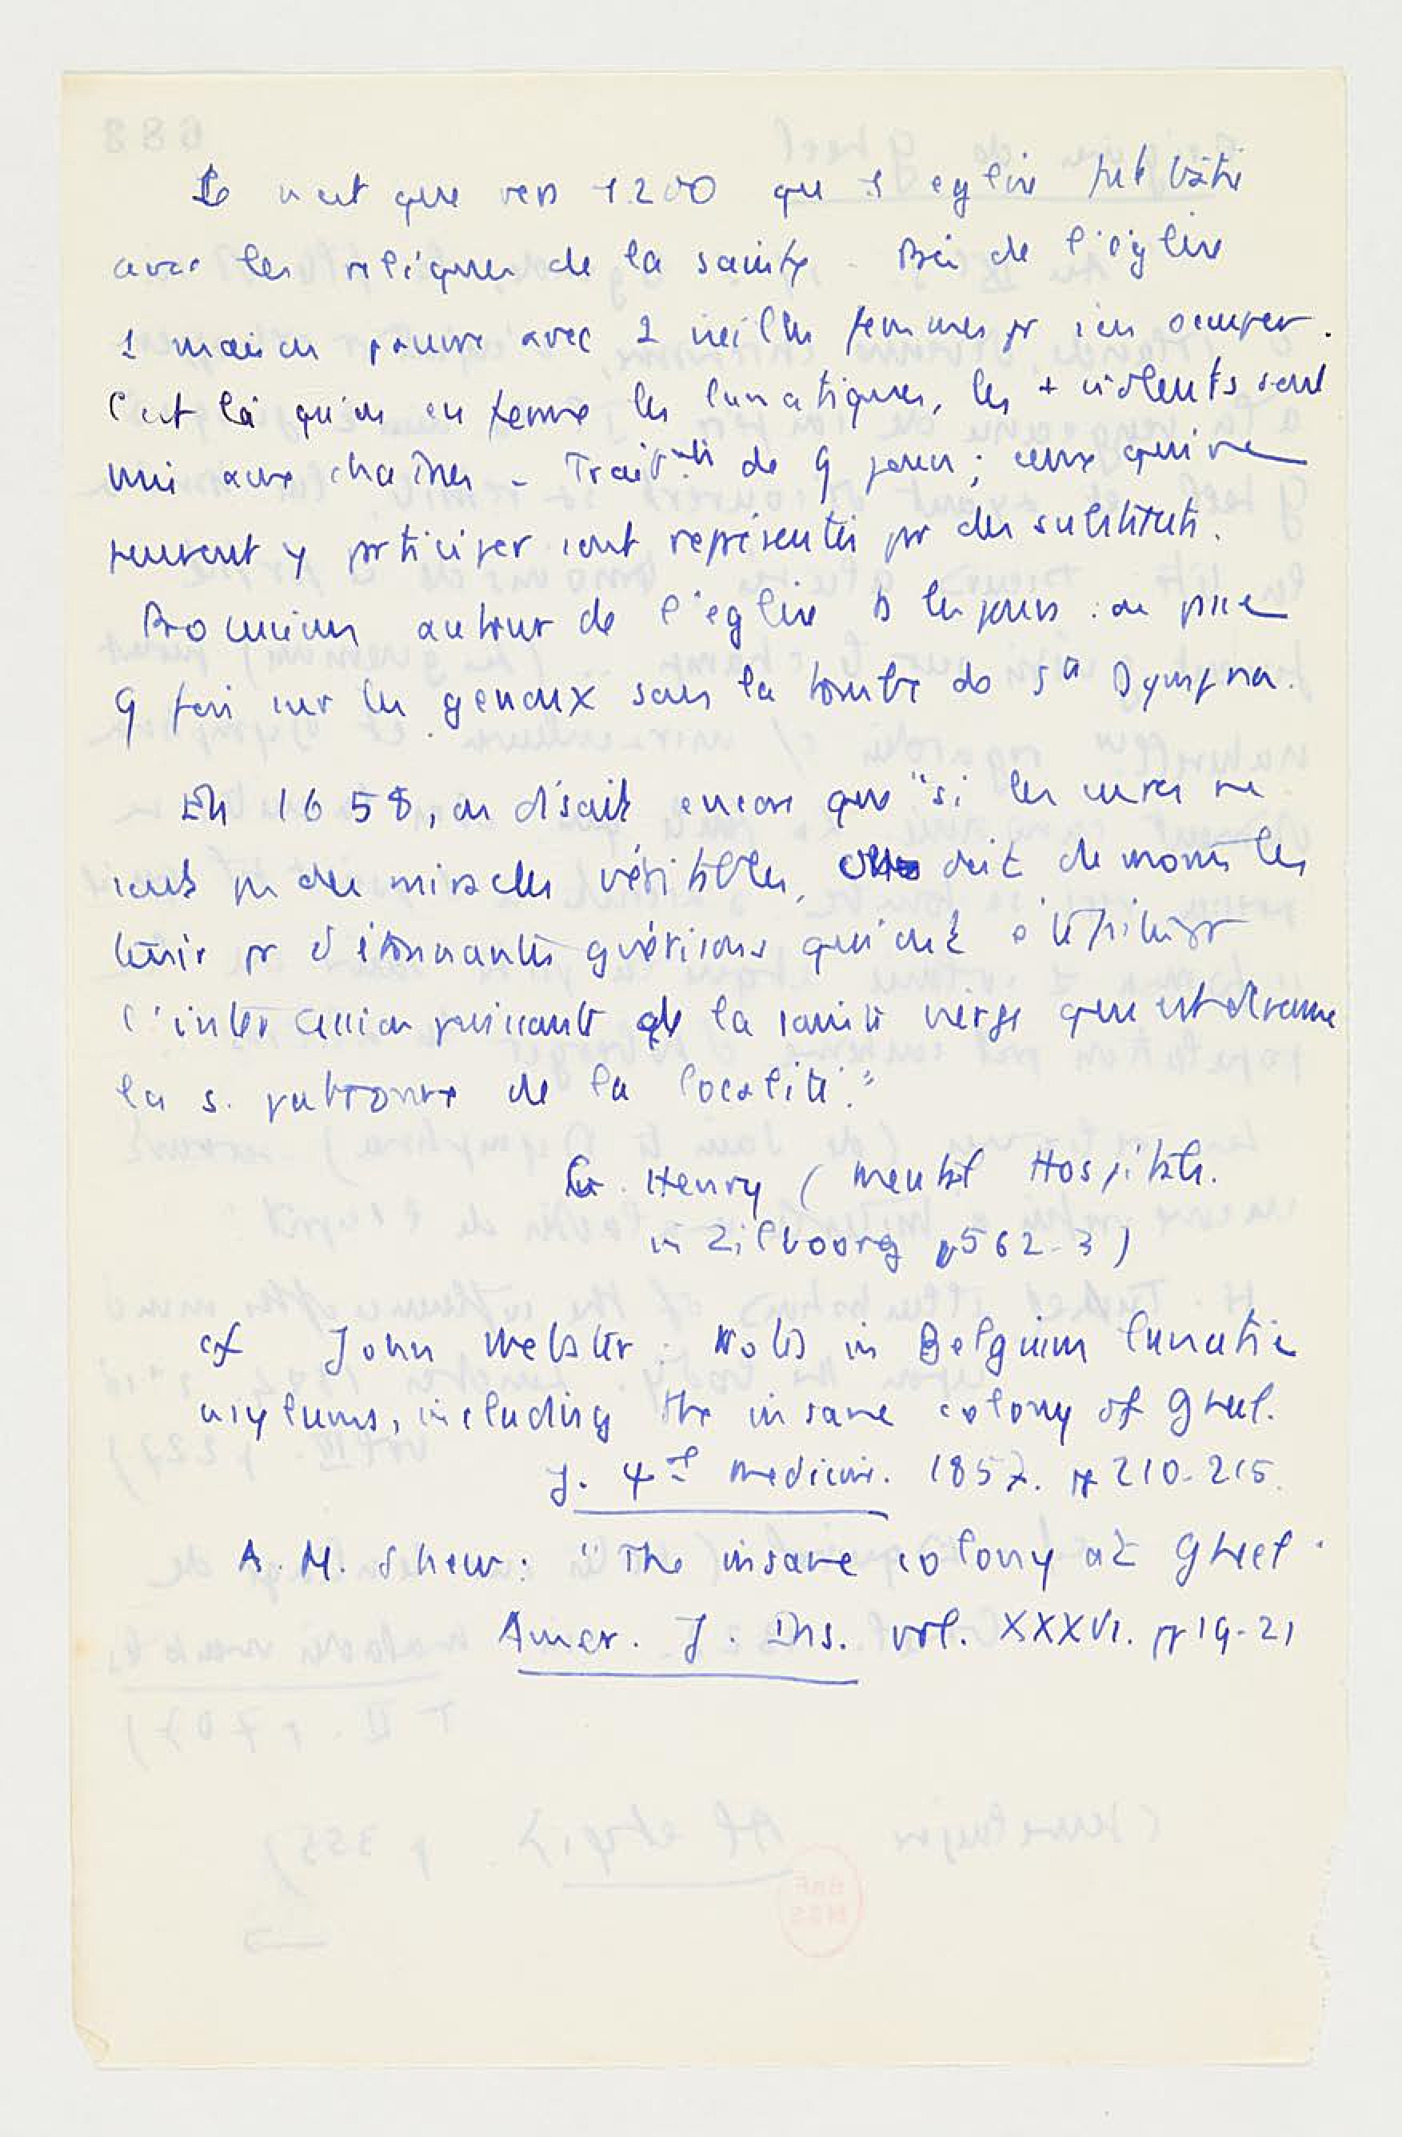 Ce n'est que vers 1200 que 1 église fut bâtie
avec les reliques de la sainte. Près de l'église
1 maison pauvre avec 2 vieilles femmes pr s'en occuper.
C'est là qu'on enferme les lunatiques, les + violents sont
mis aux chaînes – Trait^nt de 9 jours ; ceux qui ne
peuvent y prticiper sont représentés pr des substituts.
Processions autour de l'église ts les jours : on passe
9 fois sur les genoux sous la tombe de S^te Dympna.
En 1658, on disait encore que "si les cures ne
sont pr des miracles véritables, on doit du moins les
tenir pr d'étonnantes guérisons qui ont été
l'intercession puissante de la sainte vierge qui est devenue
la s. patronne de la localité."
Henry (Mental Hospitals.
in Zilboorg p562-3)
cf John Webster : Notes in Belgium lunatic
asylums, including the insane colony of Gheel.
J. medicine. 1857. pp 210-215.
A. M. Shew : "The insane colony at Gheel
Amer. J. Ins. vol. XXXVI. pp 19-21